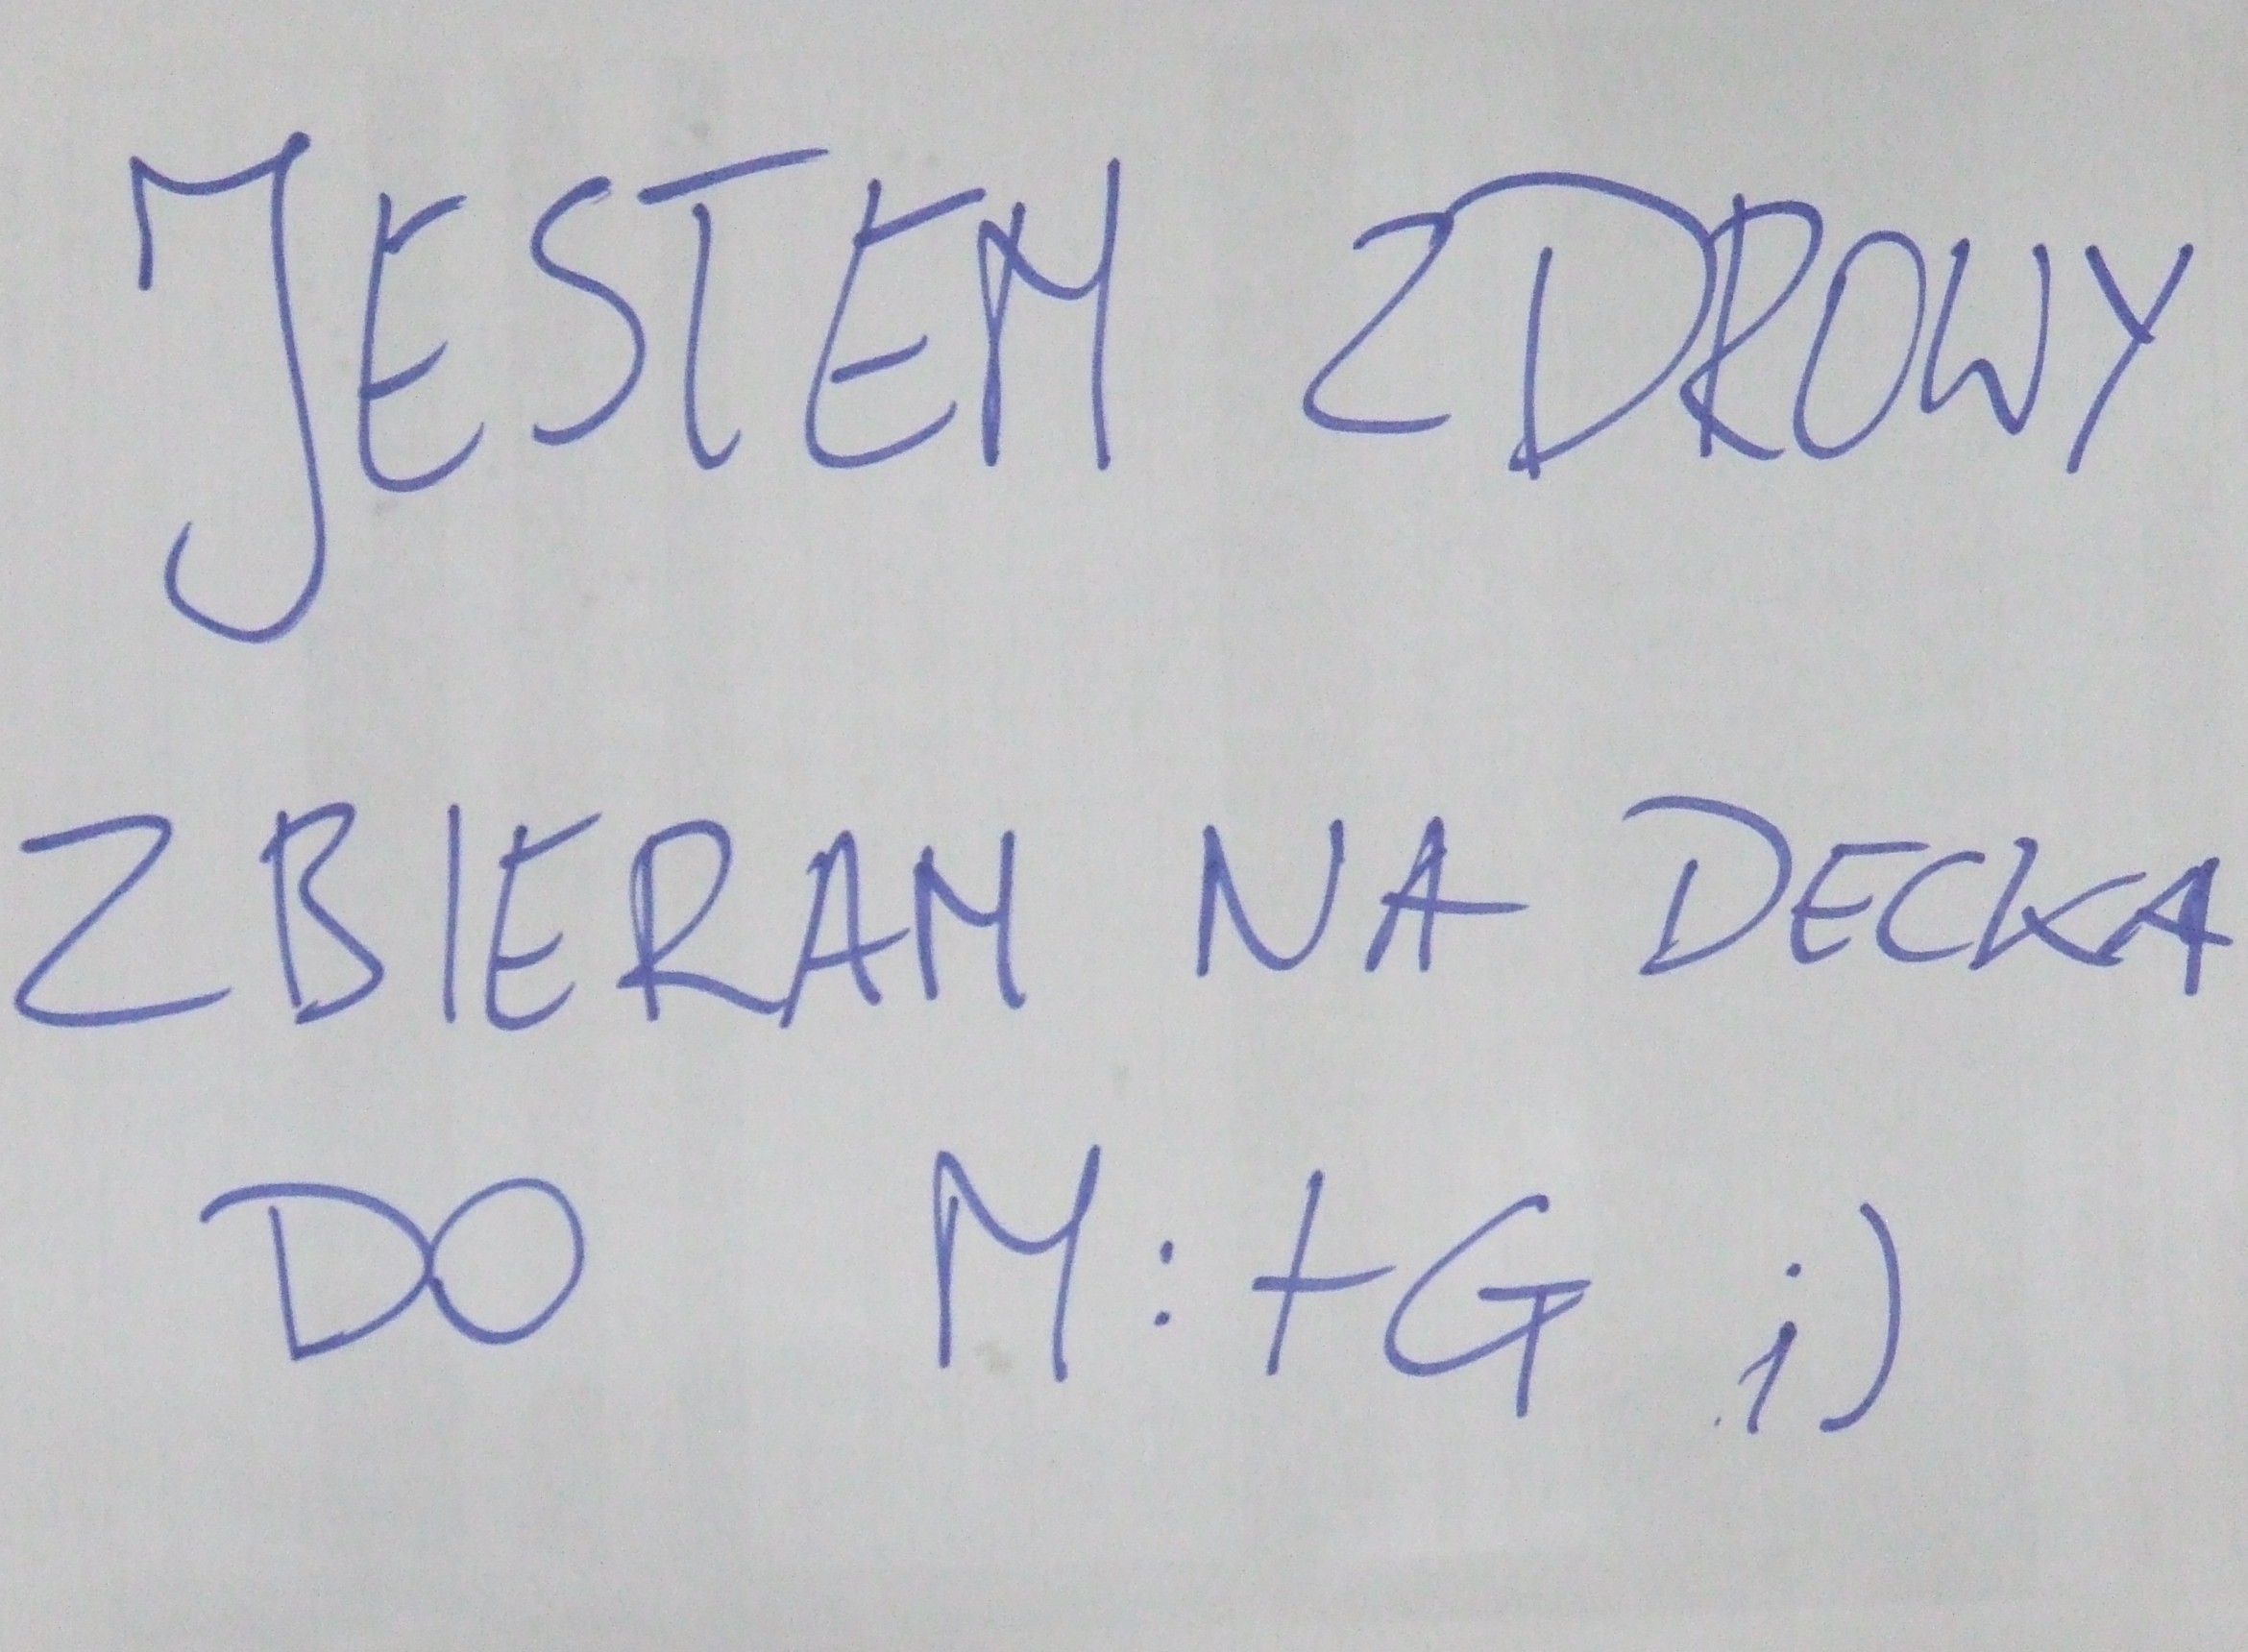 JESTEM ZDROWY
ZBIERAM NA DECKA
DO M:tG ;)